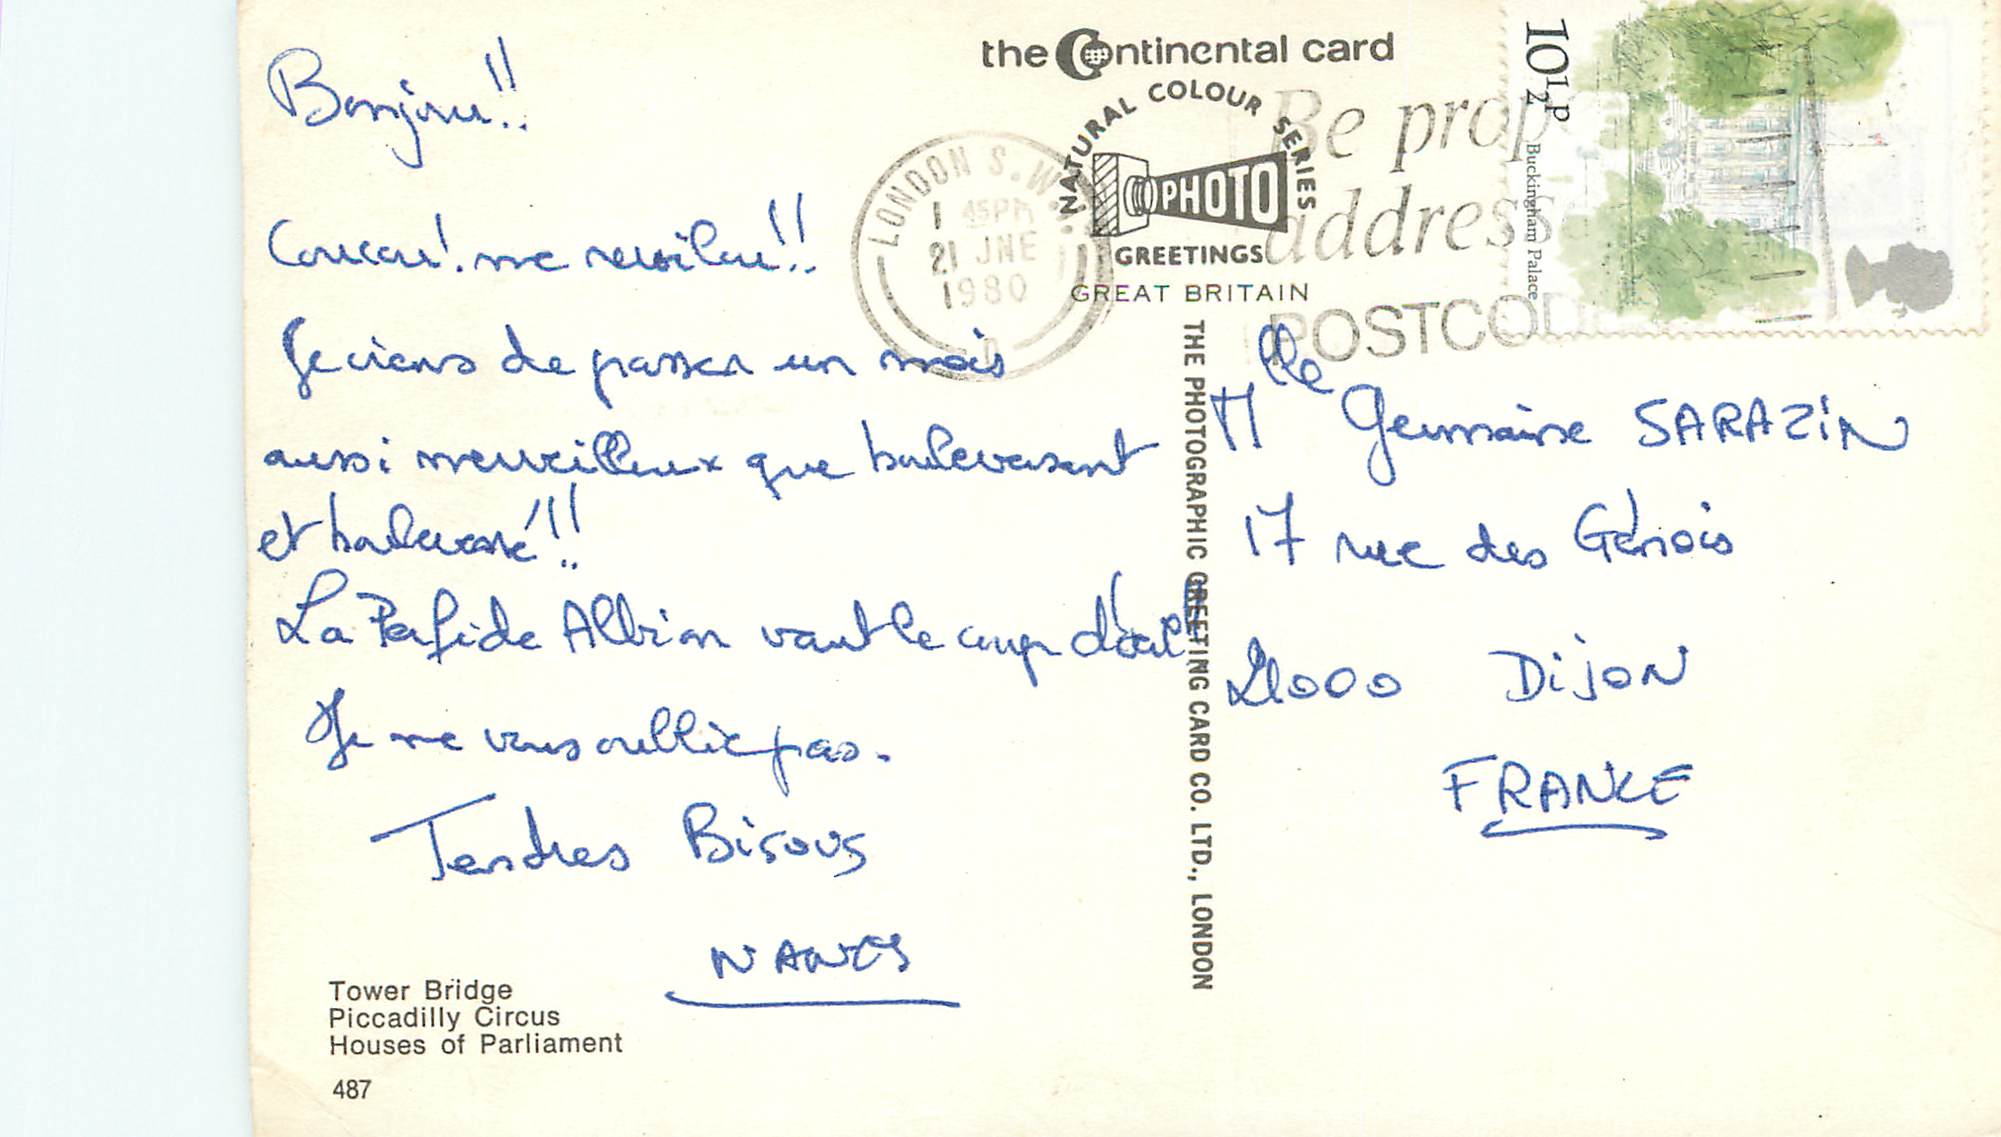 Bonjour!!
Coucou! me revoilou!!
Je viens de passer un mois
aussi merveilleux que bouleversant
et bouleversé!!
La Perfide Albion vaut le coup d'œil
Je ne vous oublie pas.
Tendres Bisous
NANCY
Tower Bridge
Piccadilly Circus
Houses of Parliament
487
the Continental card
NATURAL COLOUR SERIES
PHOTO
GREETINGS
GREAT BRITAIN
THE PHOTOGRAPHIC GREETING CARD CO. LTD., LONDON
LONDON S.W.
1 45PM
21 JNE
1980
Be prop
address
POSTCOD
10½P
Buckingham Palace
Mlle Germaine SARAZIN
17 rue des Génois
21000 DIJON
FRANCE